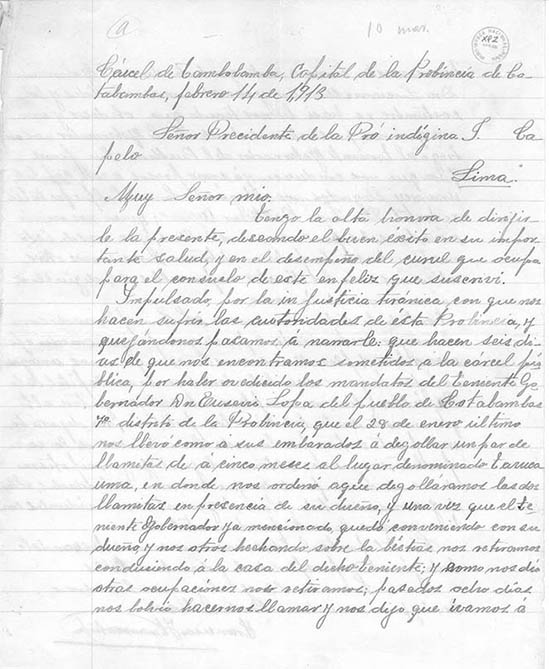 a
10 mar.
BIBLIOTECA NACIONAL
XP2
Cárcel de Tambobamba, Capital de la Probincia de Co
tabambas, febrero 14 de 1913
Señor Precidente de la Pró indígina J. Ca
pelo
Lima
Muy Señor mio:
Tengo la alta honrra de dirigir
le la presente, deseando el buen éxito en su impor
tante salud, y en el desempeño del curul que ocupa
para el consuelo de este enfeliz que suscrivi.
Impulsado, por la injusticia tiránica con que nos
hacen sufrir las autoridades de ésta Probincia, y
quejándonos pasamos á narrarle: que hacen seis di
as de que nos encontramos sometidos á la cárcel pú
blica, por haber ovedicido los mandatos del Teniente Go
bernador Dn Eusevio Lopa del pueblo de Cotabambas
distrito de la Probincia, que el 28 de enero último
nos llevó como á sus embarados á degollar un par de
llamitas de á cinco meses al lugar denominado
uma, en donde nos ordenó aque degolláramos las dos
llamitas en presencia de su dueño, y una vez que el Te
niente Gobernador ya mensionado, quedó conveniendo con su
dueño, y nos otros hechando sobre la béstias nos retiramos
condusiendo á la casa del dicho teniente; y como nos dió
otras ocupaciones nos retiramos; pasados ocho días
nos bolvió hacernos llamar y nos dijo que ivamos á